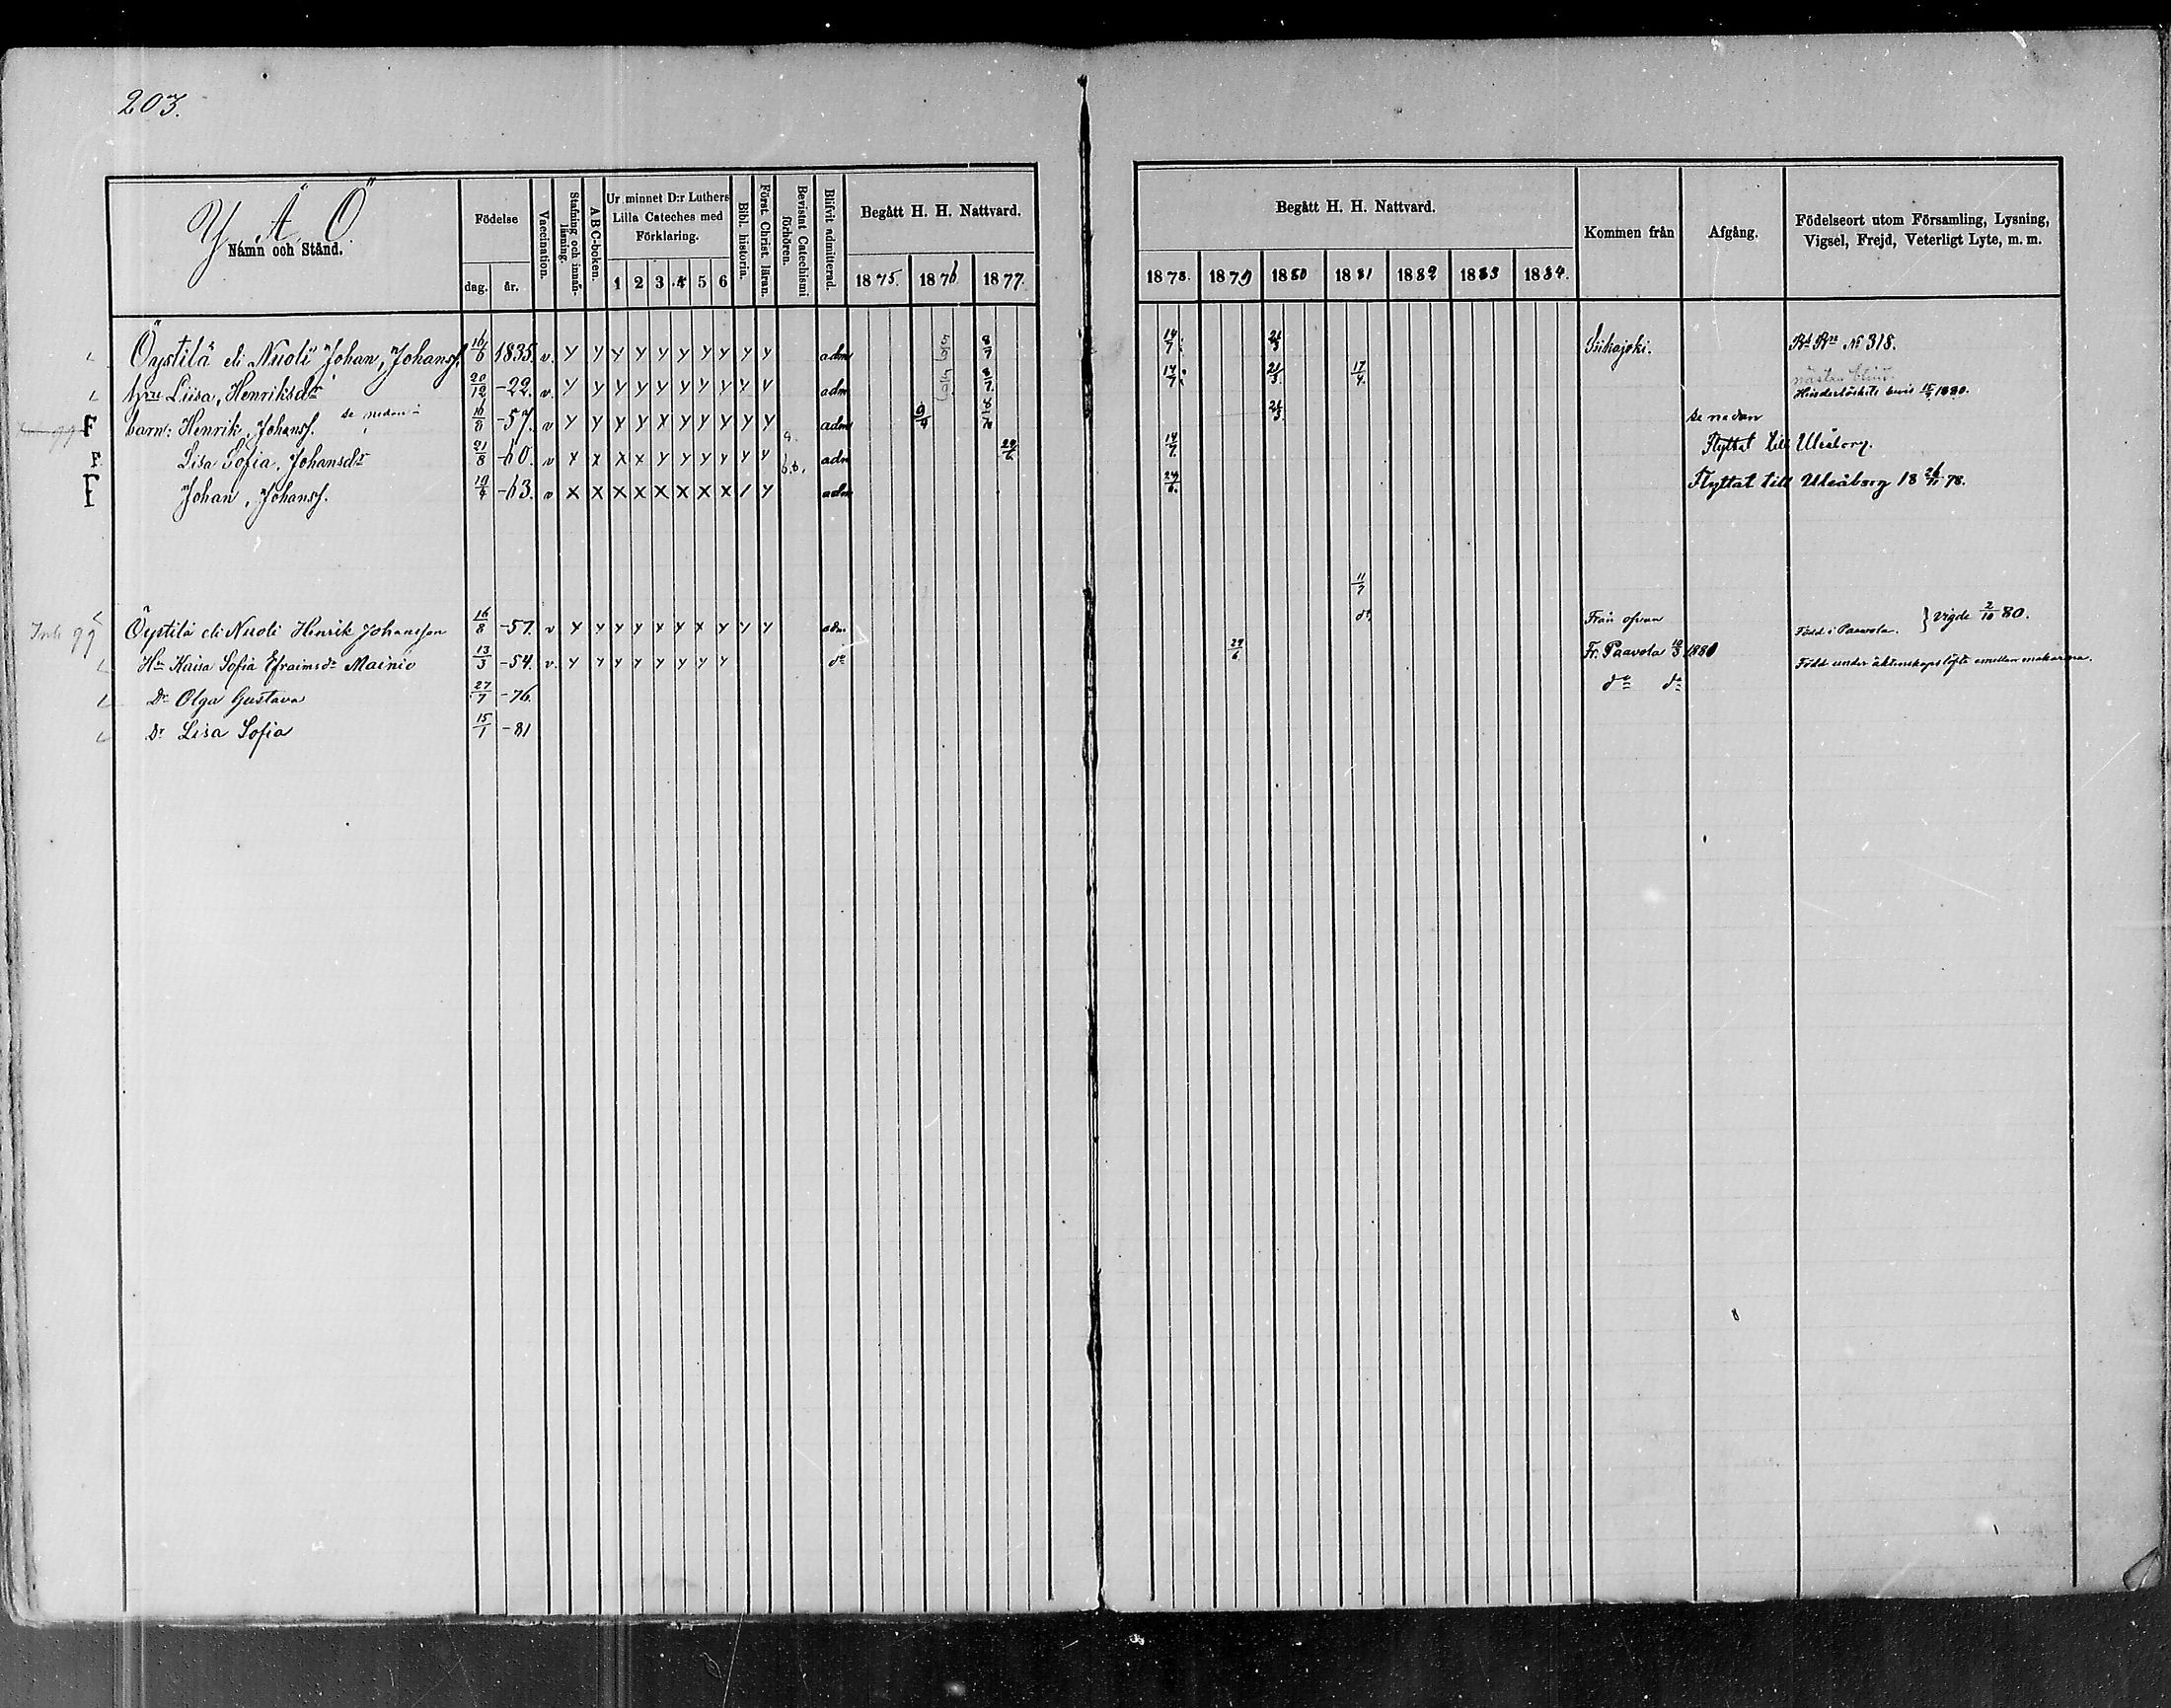 203.
Y Å Ö
Namn och Stånd.
Födelse
dag. år.
Vaccination.
Stafning och innanläsning.
ABC-boken.
Ur minnet D:r Luthers Lilla Cateches med Förklaring.
1 2 3 4 5 6
Bibl. historia.
Först. Christ. läran.
Bevistat Catechismi förhören.
Blifvit admitterad.
Begått H. H. Nattvard.
1875. 1876 1877.
Begått H. H. Nattvard.
1878. 1879 1880 1881 1882 1883 1884.
Kommen från
Afgång.
Födelseort utom Församling, Lysning, Vigsel, Frejd, Veterligt Lyte, m. m.
Öystilä eli Nuoli Johan, Johanss. 16/6 1835. v. y y y y y y y y y y adm 8/7 14/7. 21/3 Siikajoki. Rd Rre No 318.
hru Liisa, Henriksdr 20/12 -22. v y y y y y y y y y y adm 8/7. 14/7. 21/3. 17/4. nästan blind. Hinderlöshets bevis 1880.
F barn: Henrik, Johanss. se nedan 16/8 -57. v y y y y y y y y y y adm 9/4 8/7 21/3. se nedan
F Lisa Sofia, Johansdr 21/8 -60. v y x x x y y y y y y a. b.b. adm 29/6 14/7. Flyttat till Uleåborg.
F Johan, Johanss. 19/4 -63. v x x x x x x x x / y adm 29/6. Flyttat till Uleåborg 18 26/11 78.
11/7
Inh 99 Öystilä eli Nuoli Henrik Johansson 16/8 -57. v y y y y y y x y y y adm do Från ofvan } Vigde 2/10 80.
Hu Kaisa Sofia Efraimsdr Mainio 13/3 -54. v. y y y y y y y y do 29/6 Fr. Paavola 12/3 1880 Född i Paavola.
Dr Olga Gustava 27/7 -76. do do Född under äktenskapslöfte emellan makarna.
Dr Lisa Sofia 15/1 -81